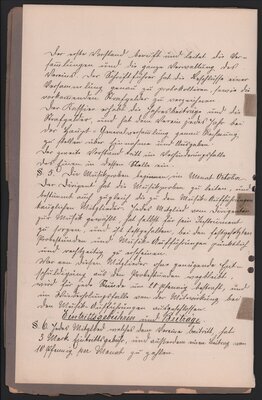 Der erste Vorstand beruft und leitet die Ver-
sammlungen und die ganze Verwaltung des
Vereins. Der Schriftführer hat die Beschlüsse einer
Versammlung genau zu protokolliren sowie die
vorkommenden Strafgelder zu verzeichnen.
Der Kassier erhebt die Jahresbeiträge und die
Strafgelder, und hat dem Verein jedes Jahr bei
der Haupt-Generalversammlung genaue Rechnung
zu stellen über Einnahmen und Ausgaben.
Der zweite Vorstand tritt im Verhinderungsfalle
des ersten in dessen Stelle ein.
§ 5. Die Musikproben beginnen im Monat October.
Der Dirigent hat die Musikproben zu leiten, und
bestimmt auch zugleich die zu den Musik-Aufführungen
tauglichen Mitglieder. Jedes Mitglied von dem
zur Musik gewählt, hat selbst für sein Instrument
zu sorgen, und ist festgehalten, bei den festgesetzten
Probestunden und Musik-Aufführungen pünktlich
und rechtzeitig zu erscheinen.
Wer von diesen Mitgliedern ohne genügende Ent-
schuldigung aus den Probestunden wegbleibt
wird für jede Stunde um 10 Pfennig bestraft, und
im Wiederholungsfalle von der Mitwirkung bei
den Musik-Aufführungen ausgeschlossen.
Eintrittsgebühren und Beiträge
§ 6. Jedes Mitglied welches dem Vereine beitritt, hat
3 Mark Eintrittsgebühr, und außerdem einen Beitrag von
10 Pfennig per Monat zu zahlen.